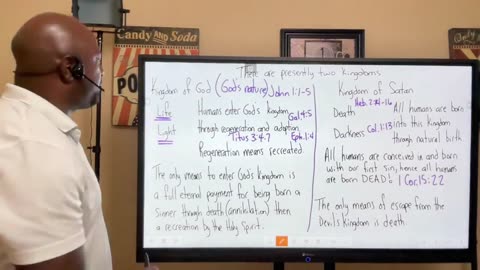 Candy AND Soda
Candy AND Soda
PO
There are presently two Kingdoms
Kingdom of God (God's nature) John 1:1-5
Life
Light
Humans enter God's Kingdom
Gal 4:5
through regeneration and adoption
Titus 3:4-7
Eph. 1:4
Regeneration means recreated.
The only means to enter God's Kingdom is
a full eternal payment for being born a
sinner through death (annihilation) then
a recreation by the Holy Spirit.
Kingdom of Satan
Heb. 2:14-16
Death
Darkness Col. 1:13
All humans are born
into this Kingdom
through natural birth
All humans are conceived in and born
with our first sin, hence all humans
are born DEAD! 1 Cor. 15:22
The only means of escape from the
Devil's Kingdom is death.